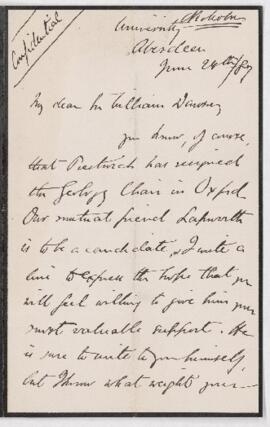 Confidential
Nicholson
University
Aberdeen
June 24th/87
My dear Sir William Dawson,
You know, of course,
that Prestwich has resigned
the Geology Chair in Oxford.
Our mutual friend Lapworth
is to be a candidate, & I write a
line to express the hope that you
will feel willing to give him your
most valuable support. He
is sure to write to you himself,
but I know what weight your